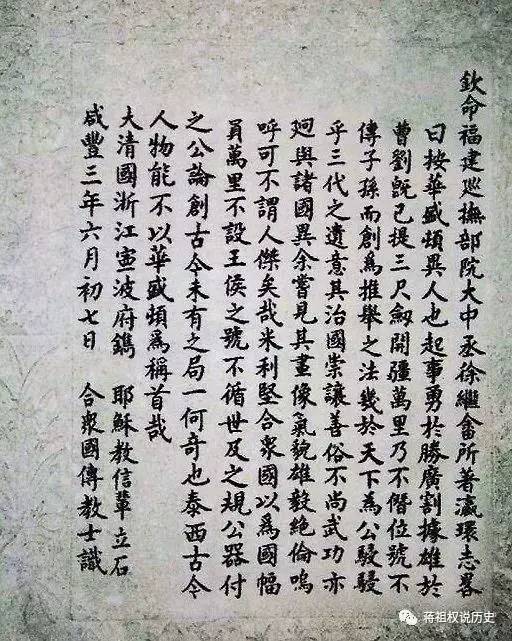 欽命福建巡撫部院大中丞徐繼畬所著瀛環志畧
曰按華盛頓異人也起事勇於勝廣割據雄於
曹劉旣已提三尺劔開疆萬里乃不僭位號不
傳子孫而創爲推舉之法幾於天下爲公駸駸
乎三代之遺意其治國崇讓善俗不尚武功亦
廻與諸國異余嘗見其畫像氣貌雄毅絕倫嗚
呼可不謂人傑矣哉米利堅合衆國以爲國幅
員萬里不設王侯之號不循世及之規公器付
之公論創古今未有之局一何奇也泰西古今
人物能不以華盛頓爲稱首哉
大清國浙江寧波府鐫 耶穌教信輩立石
咸豐三年六月初七日 合衆國傳教士識
蒋祖权说历史